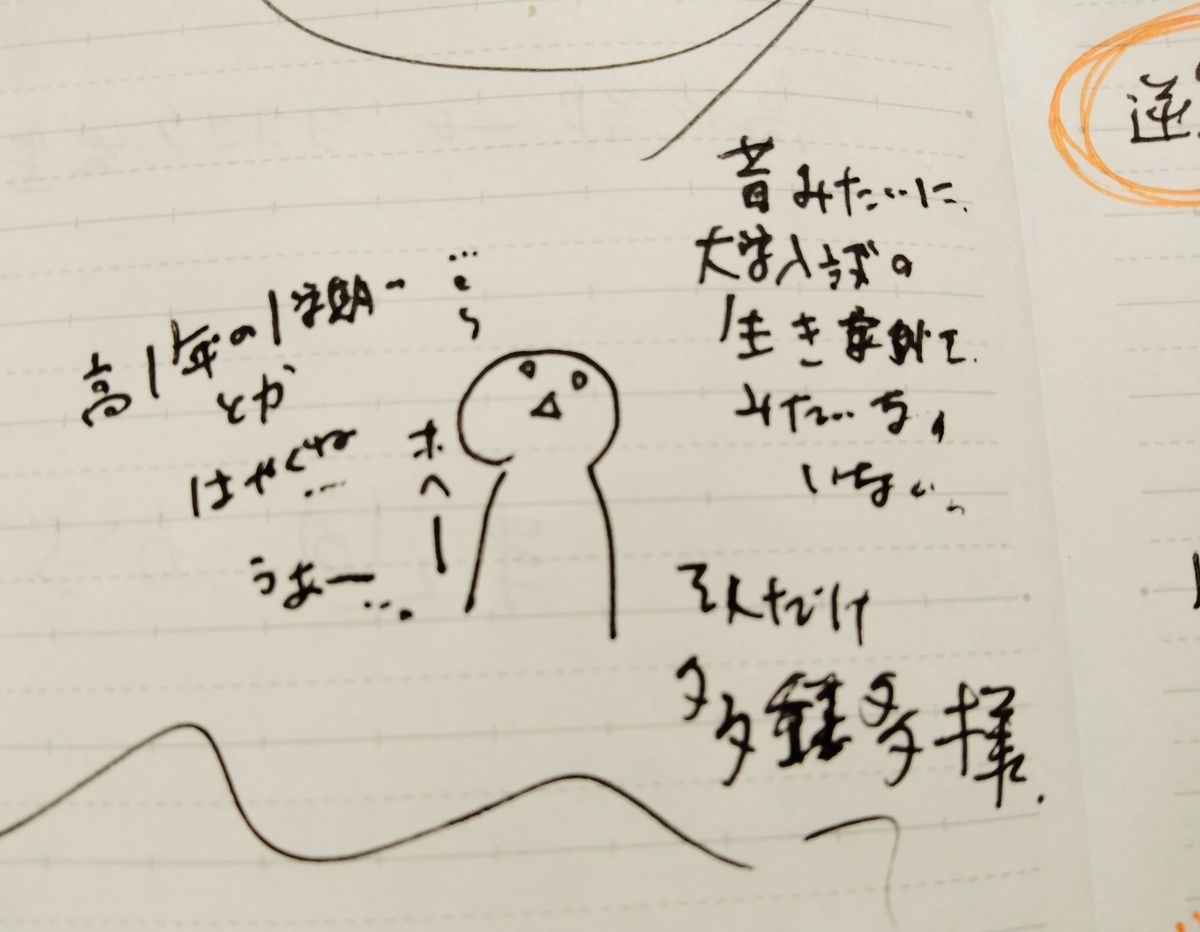 昔みたいに、
大学入試の
生き字引て
みたいな、
いない。
そんだけ
多種多様.
高1年の1学期
とか
はやくね
…
うあー…。
ホヘー
逆